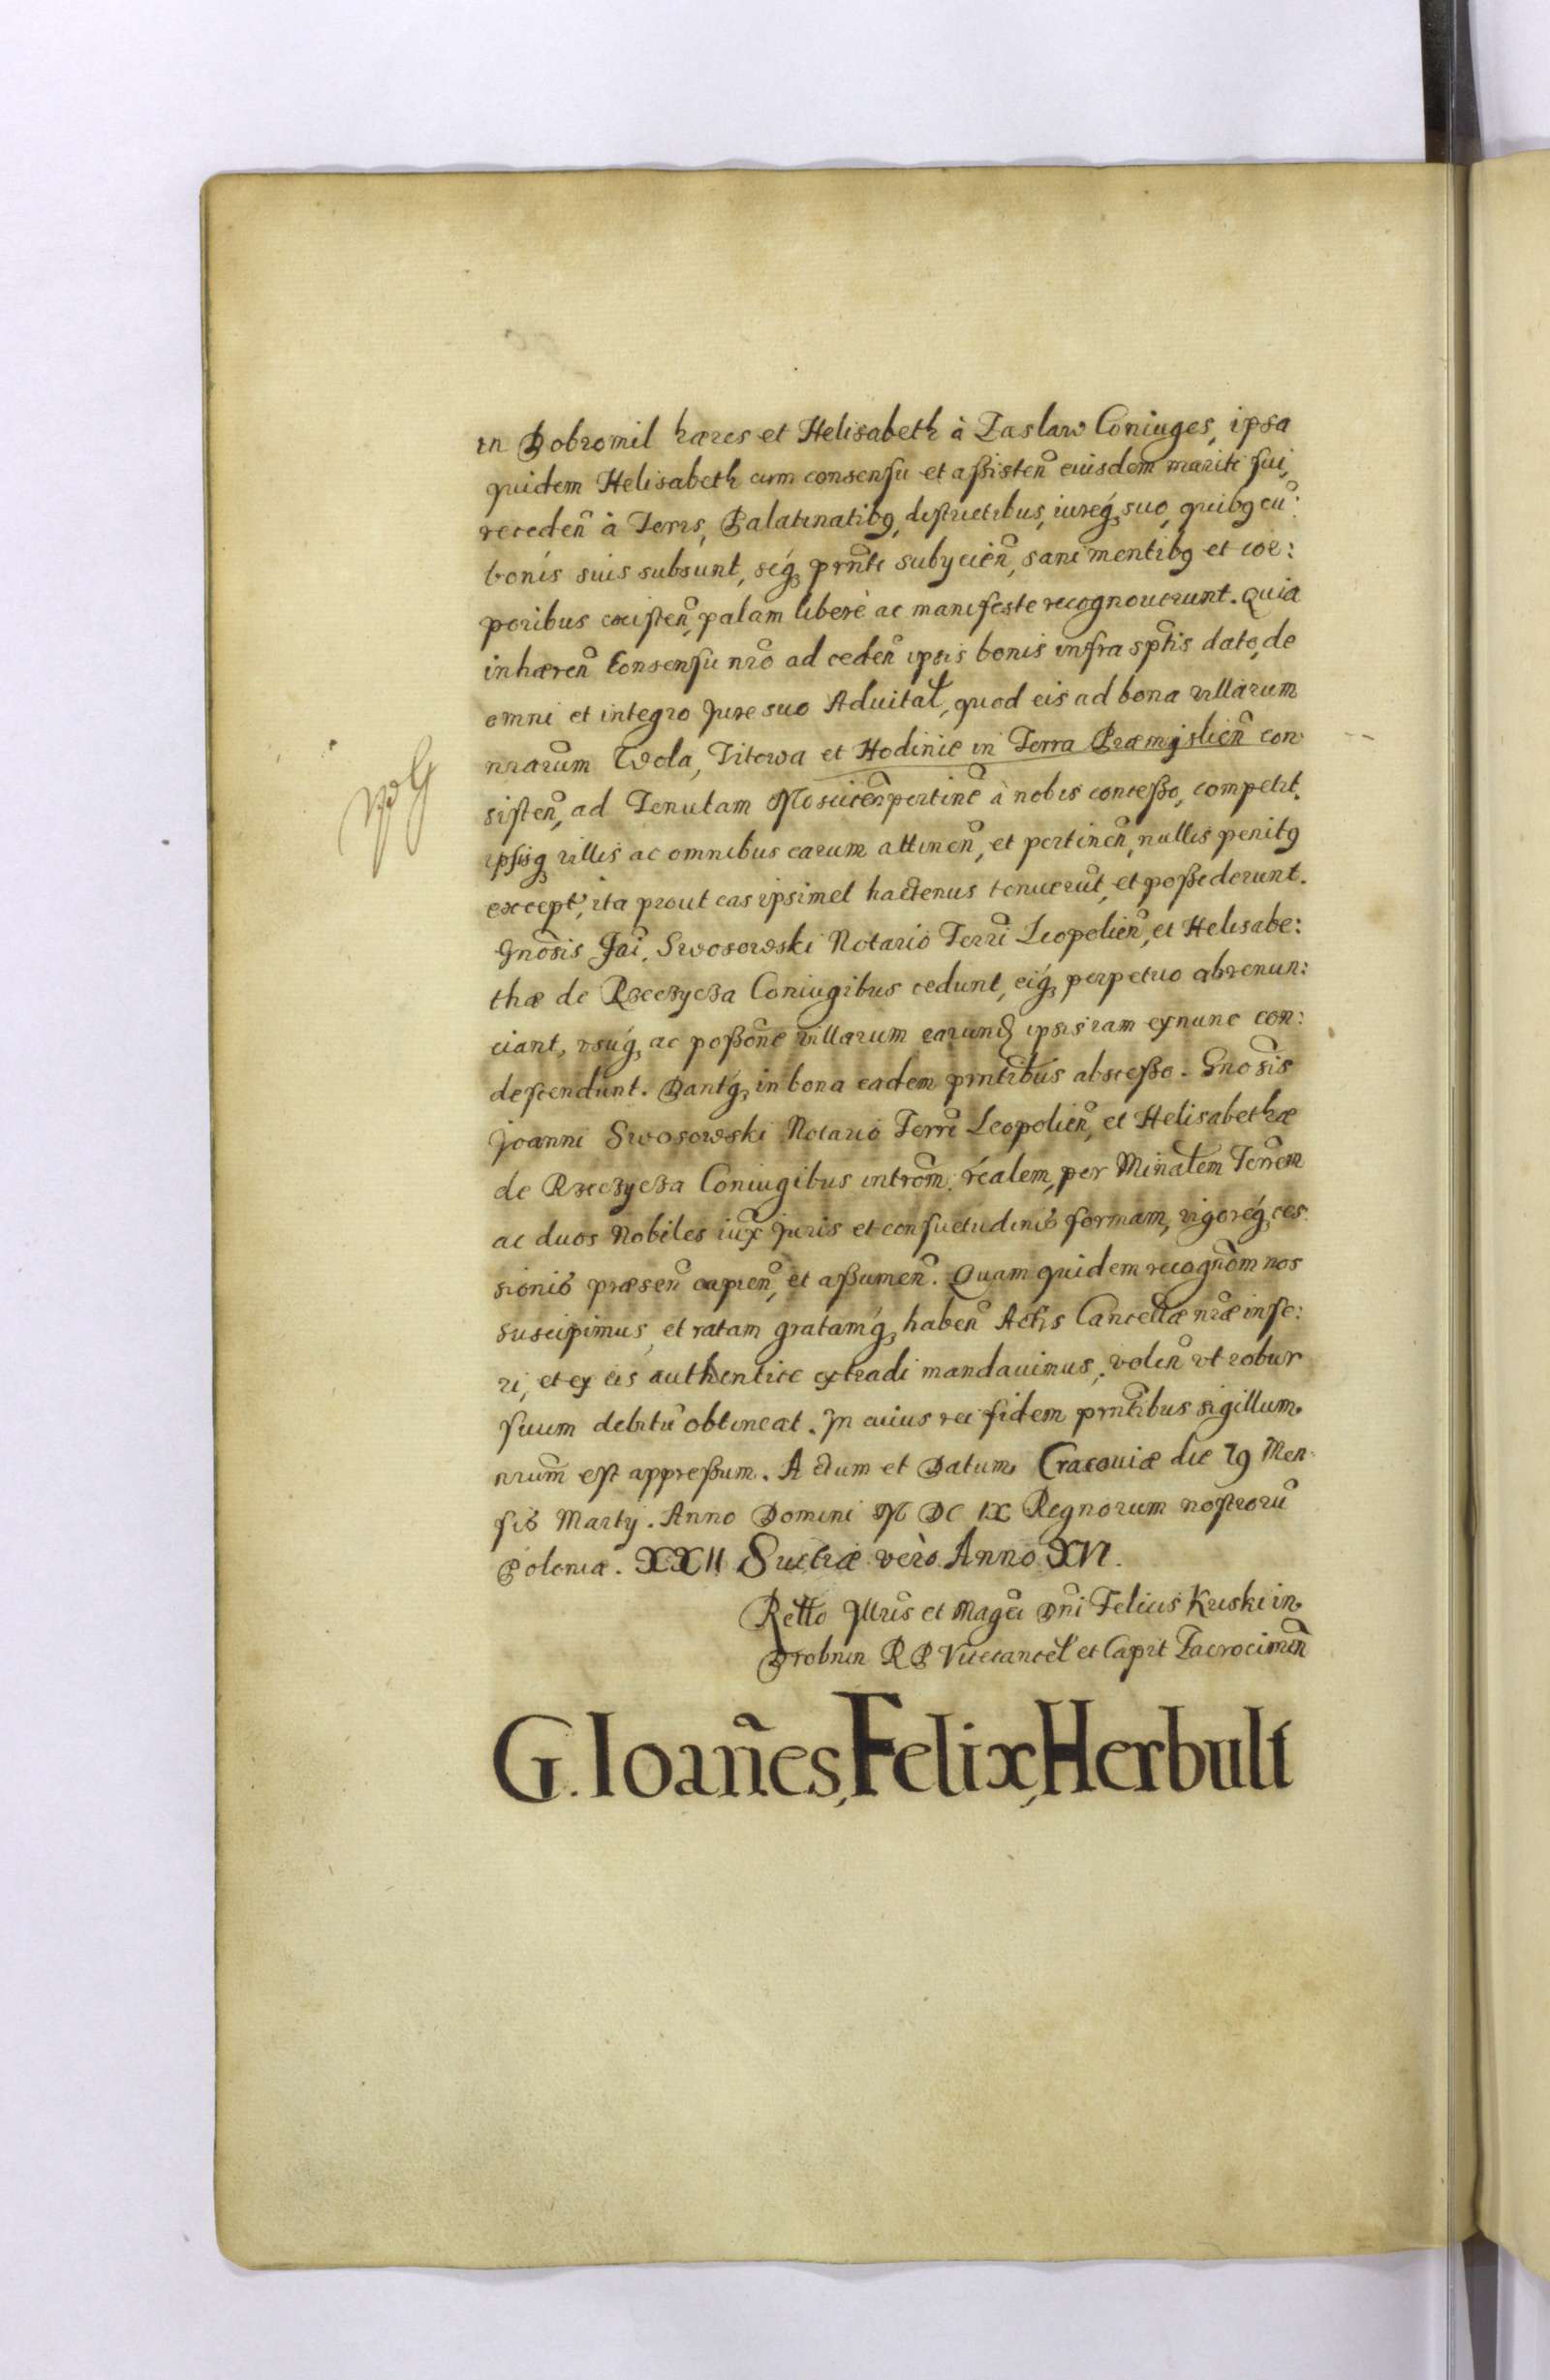 in Dobromil hæres et Helisabeth à Zaslaw Coniuges, ipsa
quidem Helisabeth cum consensu et aßisteñ eiusdem mariti sui,
recedeñ à Terris, Palatinatibꝯ, districtibus, iureq́ꝫ suo, quibꝯ cũ
bonis suis subsunt, seq́ꝫ prñti subycieñ, sani mentibꝯ et cor:
poribus existeñ, palam liberè ac manifeste recognouerunt. Quia
inhæreñ Consensu nrõ ad cedeñ ipsis bonis infra sp̃tis dato, de
omni et integro Jure suo Aduital, quod eis ad bona villarum
nrarũm Wola, Titowa et Hodinie in Terra Præmyslieñ con
sisteñ, ad Tenutam Mosciceñ pertineñ à nobis conceßo, competit.
ipsisqꝫ villis ac omnibus earum attineñ, et pertineñ, nullis penitꝯ
except, ita prout eas ipsimet hactenus tenuerũt, et poßederunt.
Gnõsis Joañi Swosowski Notario Terrĩ Leopolieñ, et Helisabe:
thæ de Rzeczycza Coniugibus cedunt, eiq́ꝫ perpetuo abrenun:
ciant, vsuq́ꝫ ac poßonẽ villarum earundꝫ ipsis iam ex nunc con:
descendunt. Dantq́ꝫ in bona eadem prñtibus absceßo. Gnosĩs
Joanni Swosowski Notario Terrĩ Leopolieñ, et Helisabethæ
de Rzeczycza Coniugibus intrõm realem, per Minalẽm Terrẽm
ac duos Nobiles iuxᷓ Juris et consuetudinis formam, vigoreq́ꝫ ces
sionis præseñ capieñ, et aßumeñ. Quam quidem recognõm nos
suscipimus, et ratam gratamq́ꝫ habeñ Actis Cancellæ nræ inse:
ri, et ex eis authentice extradi mandauimus, voleñ vt robur
suum debitũ obtineat. In cuius rei fidem prñtibus sigillum
nrũm est appreßum. Actum et Datum Cracouiæ die 29 Men
sis Martij. Anno Domini M DC IX Regnorum nostrorũ
Poloniæ. XXII Sueciæ verò Anno XVI.
Rello Illrĩs et Magcĩ Dñi Felicis Kriski in
Drobnin R P Vicecancel et Capit Zacrocimeñ
G. Ioañes, Felix, Herbult